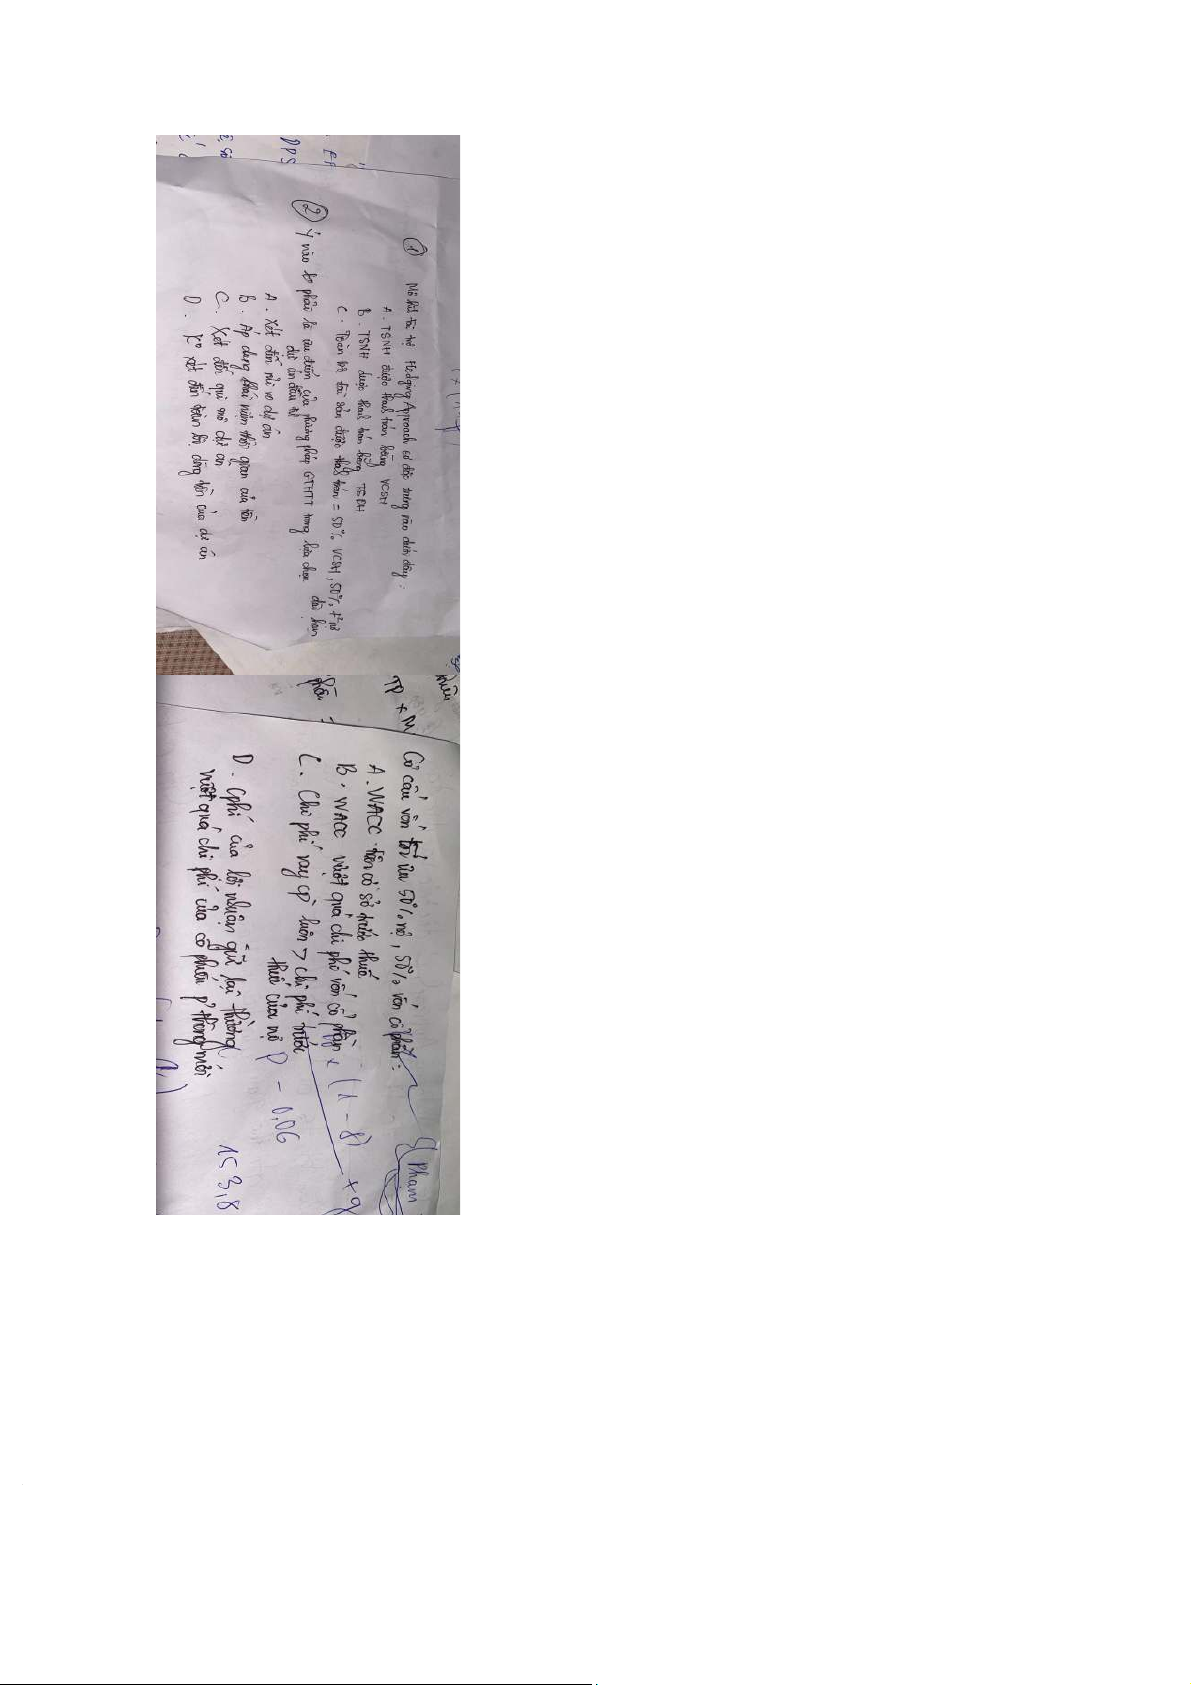 DPS
① Mô hình tài trợ Hedging Approach có đặc trưng nào dưới đây:
A. TSNH được thanh toán bằng VCSH
B. TSNH được thanh toán bằng TSDH
C. Toàn bộ tài sản được thanh toán = 50% VCSH, 50% từ nợ
② Ý nào ko phải là ưu điểm của phương pháp GTHTT trong lựa chọn
dự án đầu tư dài hạn
A. Xét đến rủi ro dự án
B. Áp dụng khái niệm thời gian của tiền
C. Xét đến quy mô dự án
D. Ko xét đến toàn bộ dòng tiền của dự án
Cơ cấu vốn tối ưu 50% nợ, 50% vốn cổ phần:
A. WACC trên cơ sở trước thuế
B. WACC vượt quá chi phí vốn cổ phần
C. Chi phí vay luôn > chi phí trước
thuế của nợ
D. Cphí của lợi nhuận giữ lại thường
vượt quá chi phí của cổ phiếu pthông mới
(1 - 8)
+ g
P - 0,06
153,8
Phạm